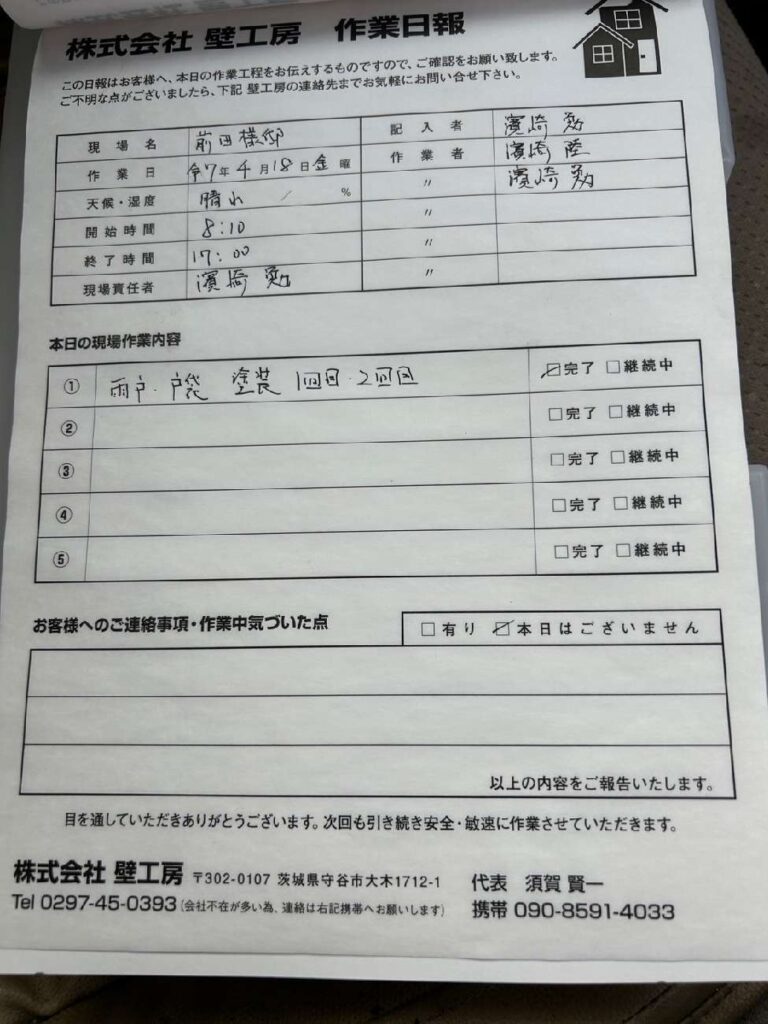 株式会社 壁工房 作業日報
この日報はお客様へ、本日の作業工程をお伝えするものですので、ご確認をお願い致します。
ご不明な点がございましたら、下記 壁工房の連絡先までお気軽にお問い合せ下さい。
現場名 前田様邸 記入者 濱崎 勉
作業日 令7年4月18日金曜 作業者 濱崎 陸
天候・湿度 晴れ / % 〃 濱崎 勉
開始時間 8:10 〃
終了時間 17:00 〃
現場責任者 濱崎 勉 〃
本日の現場作業内容
① 雨戸・戸袋 塗装 1回目・2回目 ☑完了 □継続中
② □完了 □継続中
③ □完了 □継続中
④ □完了 □継続中
⑤ □完了 □継続中
お客様へのご連絡事項・作業中気づいた点 □有り ☑本日はございません
以上の内容をご報告いたします。
目を通していただきありがとうございます。次回も引き続き安全・敏速に作業させていただきます。
株式会社 壁工房 〒302-0107 茨城県守谷市大木1712-1 代表 須賀 賢一
Tel 0297-45-0393 (会社不在が多い為、連絡は右記携帯へお願いします) 携帯 090-8591-4033